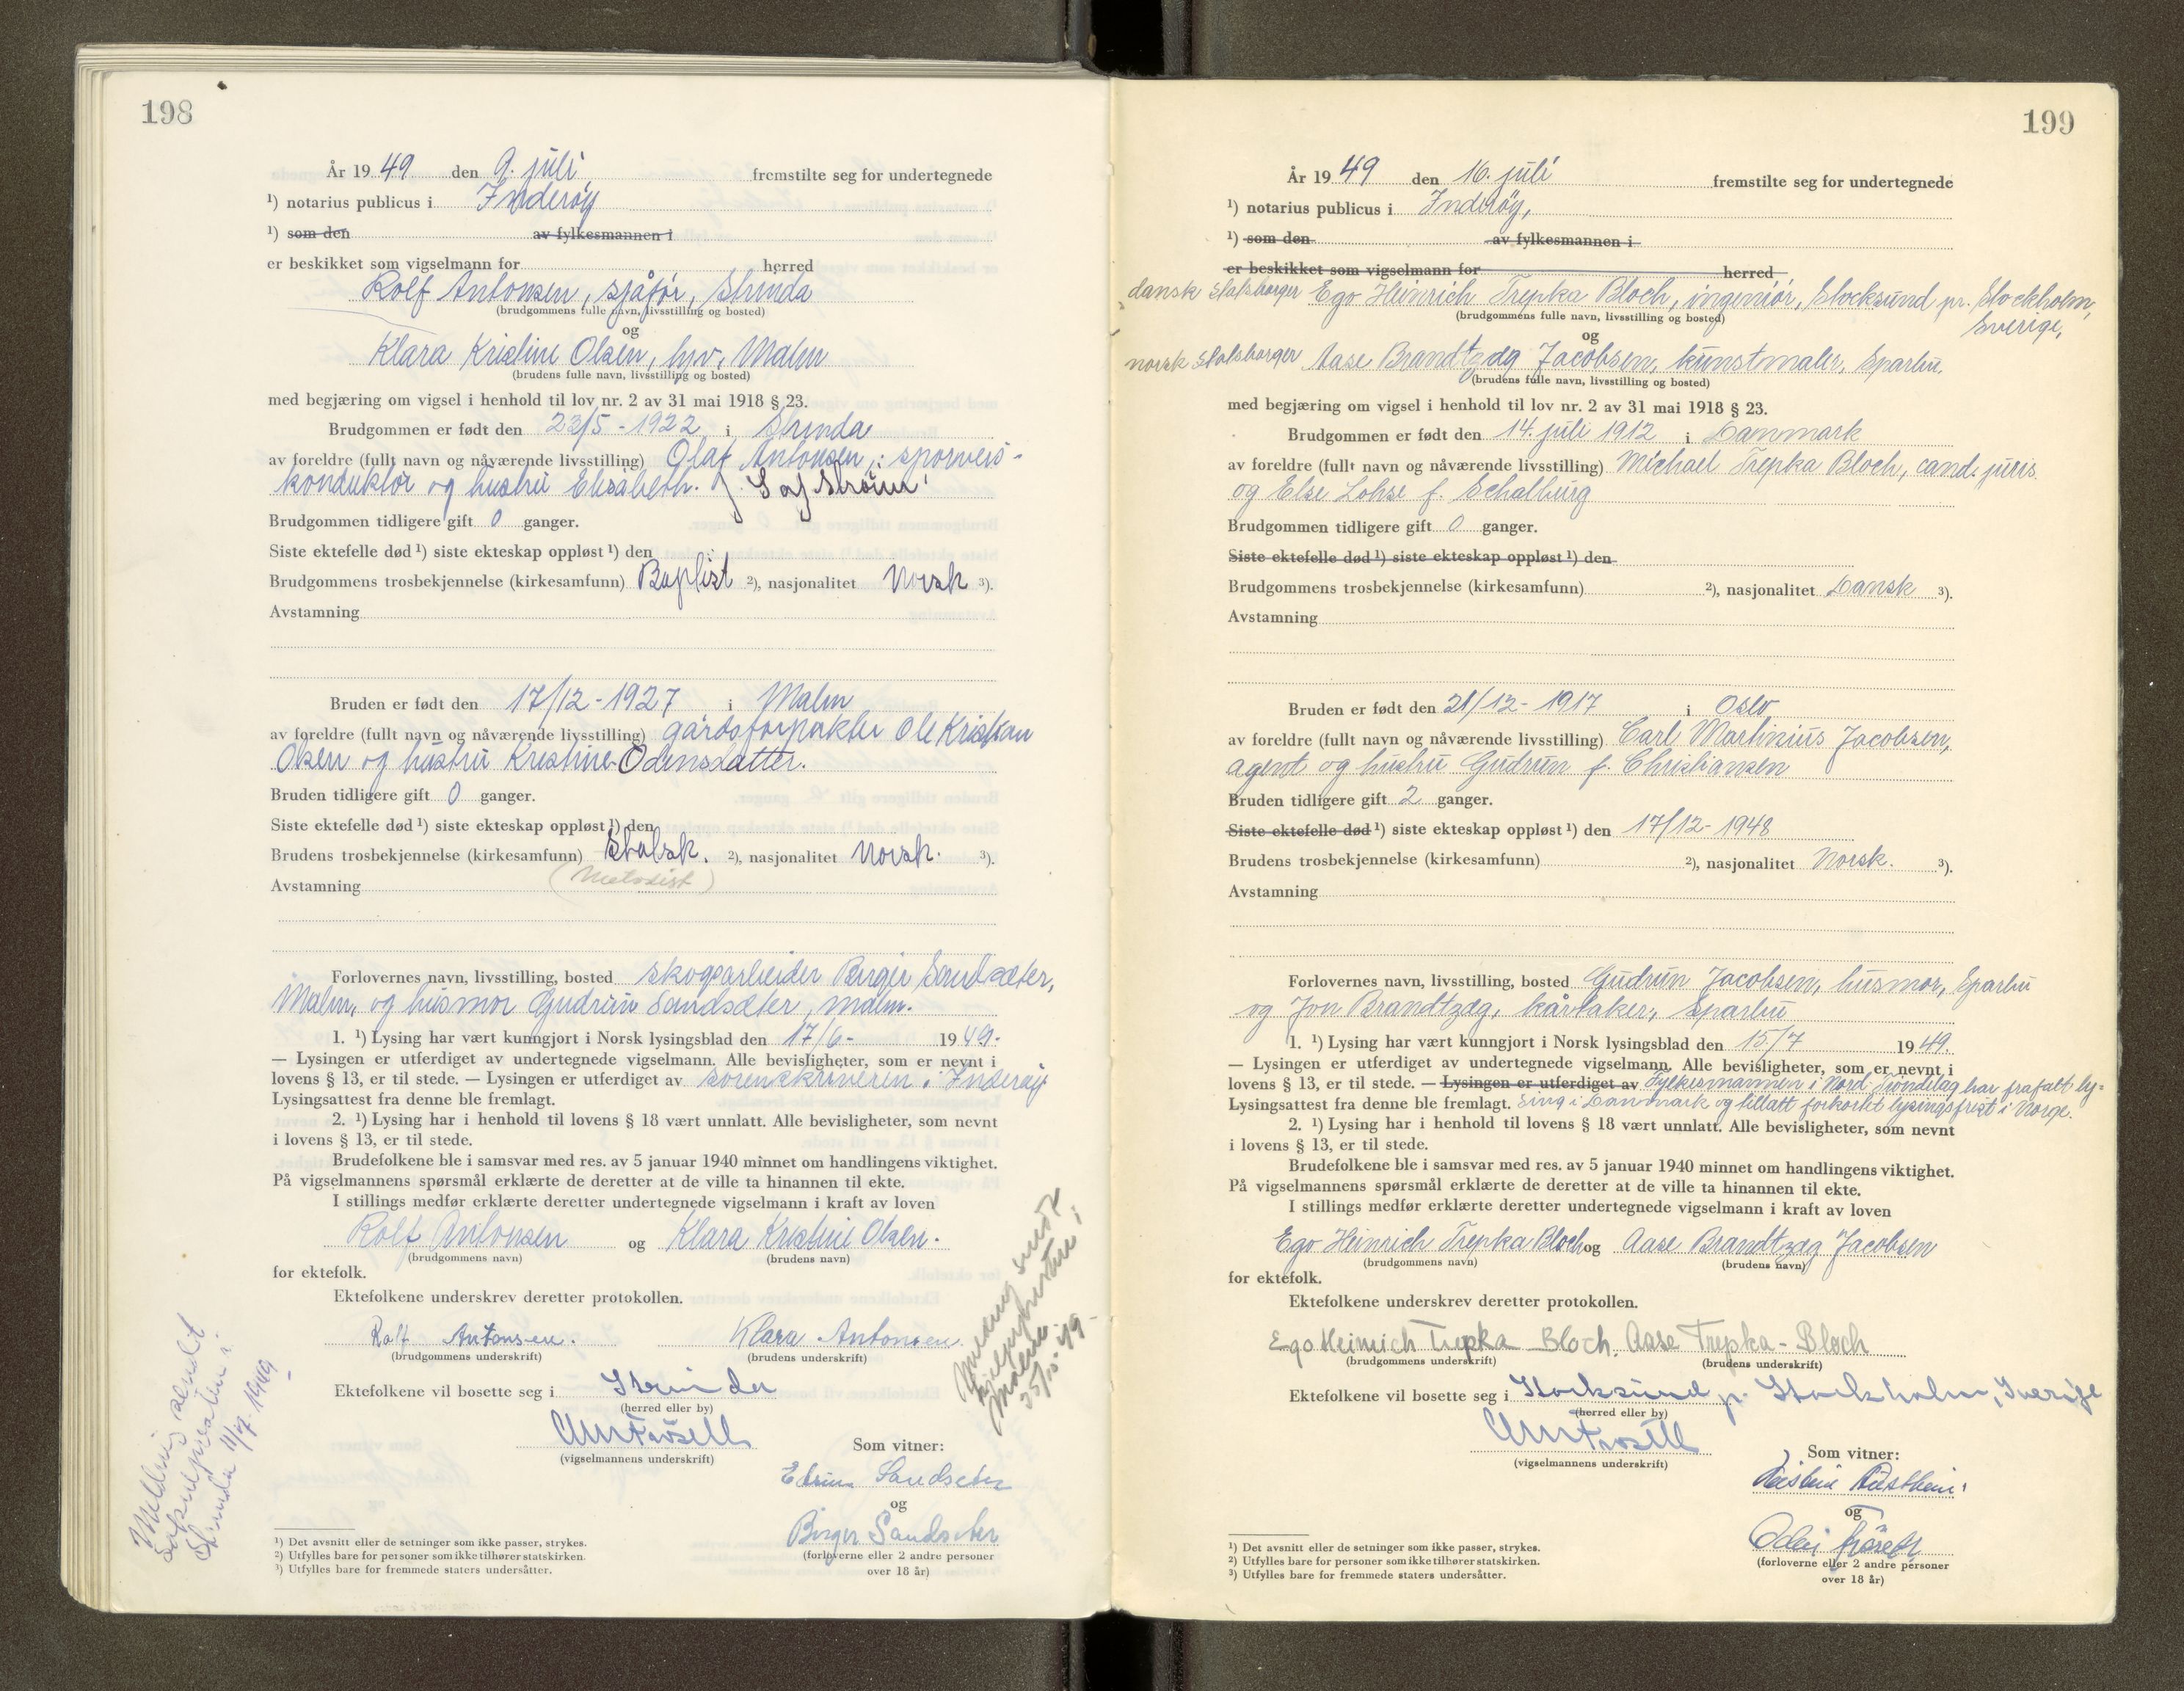 198
År 19 49 den 9. juli fremstilte seg for undertegnede
¹) notarius publicus i Inderøy
¹) som den av fylkesmannen i
er beskikket som vigselmann for herred
Rolf Antonsen, sjåfør, Strinda
(brudgommens fulle navn, livsstilling og bosted)
og
Klara Kristine Olsen, hjv., Malm
(brudens fulle navn, livsstilling og bosted)
med begjæring om vigsel i henhold til lov nr. 2 av 31 mai 1918 § 23.
Brudgommen er født den 23/5 - 1922 i Strinda
av foreldre (fullt navn og nåværende livsstilling) Olaf Antonsen, sporveis-
konduktør og hustru Elisabeth.
Brudgommen tidligere gift 0 ganger.
Siste ektefelle død ¹) siste ekteskap oppløst ¹) den
Brudgommens trosbekjennelse (kirkesamfunn) Baptist ²), nasjonalitet Norsk ³).
Avstamning
Bruden er født den 17/12 - 1927 i Malm
av foreldre (fullt navn og nåværende livsstilling) gårdsforpakter Ole Kristian
Olsen og hustru Kristine Odinsdatter.
Bruden tidligere gift 0 ganger.
Siste ektefelle død ¹) siste ekteskap oppløst ¹) den
Brudens trosbekjennelse (kirkesamfunn) Statsk. ²), nasjonalitet Norsk. ³).
(Metodist)
Avstamning
Forlovernes navn, livsstilling, bosted skogsarbeider Birger Sandsæter,
Malm, og husmor Gudrun Sandsæter, Malm.
1. ¹) Lysing har vært kunngjort i Norsk lysingsblad den 17/6 - 19 49.
— Lysingen er utferdiget av undertegnede vigselmann. Alle bevisligheter, som er nevnt i
lovens § 13, er til stede. — Lysingen er utferdiget av sorenskriveren i Inderøy
Lysingsattest fra denne ble fremlagt.
2. ¹) Lysing har i henhold til lovens § 18 vært unnlatt. Alle bevisligheter, som nevnt
i lovens § 13, er til stede.
Brudefolkene ble i samsvar med res. av 5 januar 1940 minnet om handlingens viktighet.
På vigselmannens spørsmål erklærte de deretter at de ville ta hinannen til ekte.
I stillings medfør erklærte deretter undertegnede vigselmann i kraft av loven
Rolf Antonsen og Klara Kristine Olsen.
(brudgommens navn) (brudens navn)
for ektefolk.
Ektefolkene underskrev deretter protokollen.
Rolf Antonsen. Klara Antonsen
(brudgommens underskrift) (brudens underskrift)
Ektefolkene vil bosette seg i Strinda
(herred eller by)
(vigselmannens underskrift)
Som vitner:
Sandseter
og
Birger Sandseter
(forloverne eller 2 andre personer
over 18 år)
Melding sendt
soknepresten i
Strinda 11/7. 1949
Melding sendt
hjelpepresten i
Malm
¹) Det avsnitt eller de setninger som ikke passer, strykes.
²) Utfylles bare for personer som ikke tilhører statskirken.
³) Utfylles bare for fremmede staters undersåtter.
199
År 19 49 den 16. juli fremstilte seg for undertegnede
¹) notarius publicus i Inderøy,
¹) som den av fylkesmannen i
er beskikket som vigselmann for herred
dansk statsborger Ego Heinrich Trepka Bloch, ingeniør, Stocksund pr. Stockholm,
Sverige,
(brudgommens fulle navn, livsstilling og bosted)
og
norsk statsborger Aase Brandtzæg Jacobsen, kunstmaler, Sparbu.
(brudens fulle navn, livsstilling og bosted)
med begjæring om vigsel i henhold til lov nr. 2 av 31 mai 1918 § 23.
Brudgommen er født den 14. juli 1912 i Danmark
av foreldre (fullt navn og nåværende livsstilling) Michael Trepka Bloch, cand. juris.
og Else Lohse f. Schalburg
Brudgommen tidligere gift 0 ganger.
Siste ektefelle død ¹) siste ekteskap oppløst ¹) den
Brudgommens trosbekjennelse (kirkesamfunn) ²), nasjonalitet Dansk ³).
Avstamning
Bruden er født den 21/12 - 1917 i Oslo
av foreldre (fullt navn og nåværende livsstilling) Carl Martinius Jacobsen,
agent og hustru Gudrun f. Christiansen
Bruden tidligere gift 2 ganger.
Siste ektefelle død ¹) siste ekteskap oppløst ¹) den 17/12 - 1948
Brudens trosbekjennelse (kirkesamfunn) ²), nasjonalitet Norsk. ³).
Avstamning
Forlovernes navn, livsstilling, bosted Gudrun Jacobsen, husmor, Sparbu
og Jon Brandtzæg, kårtaker, Sparbu
1. ¹) Lysing har vært kunngjort i Norsk lysingsblad den 15/7 19 49.
— Lysingen er utferdiget av undertegnede vigselmann. Alle bevisligheter, som er nevnt i
lovens § 13, er til stede. — Lysingen er utferdiget av Fylkesmannen i Nord-Trøndelag har frafalt ly=
Lysingsattest fra denne ble fremlagt. sing i Danmark og tillatt forkortet lysingsfrist i Norge.
2. ¹) Lysing har i henhold til lovens § 18 vært unnlatt. Alle bevisligheter, som nevnt
i lovens § 13, er til stede.
Brudefolkene ble i samsvar med res. av 5 januar 1940 minnet om handlingens viktighet.
På vigselmannens spørsmål erklærte de deretter at de ville ta hinannen til ekte.
I stillings medfør erklærte deretter undertegnede vigselmann i kraft av loven
Ego Heinrich Trepka Bloch og Aase Brandtzæg Jacobsen
(brudgommens navn) (brudens navn)
for ektefolk.
Ektefolkene underskrev deretter protokollen.
Ego Heinrich Trepka Bloch. Aase Trepka-Bloch
(brudgommens underskrift) (brudens underskrift)
Ektefolkene vil bosette seg i Stocksund p. Stockholm, Sverige
(herred eller by)
(vigselmannens underskrift)
Som vitner:
og
(forloverne eller 2 andre personer
over 18 år)
¹) Det avsnitt eller de setninger som ikke passer, strykes.
²) Utfylles bare for personer som ikke tilhører statskirken.
³) Utfylles bare for fremmede staters undersåtter.